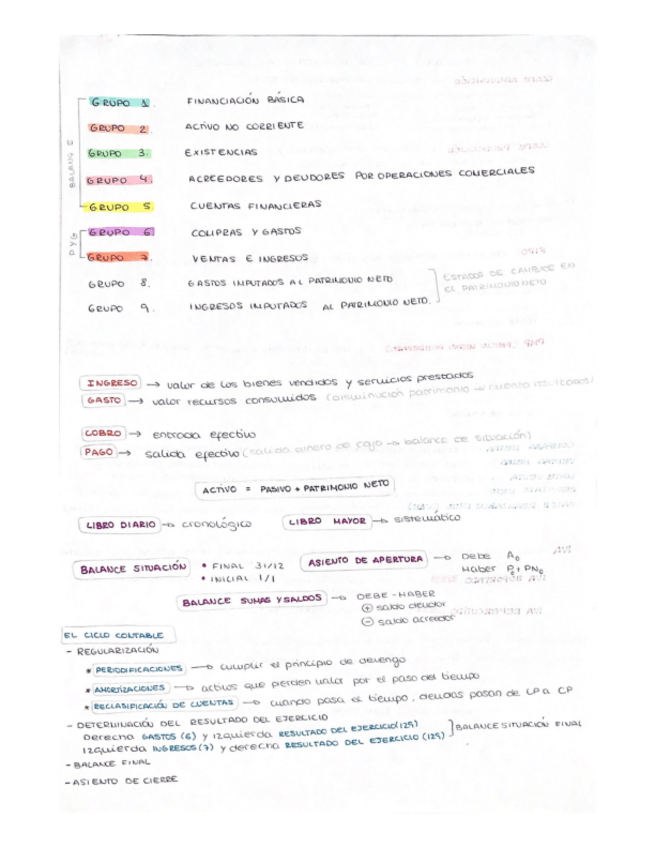 GRUPO 1. FINANCIACIÓN BÁSICA
GRUPO 2. ACTIVO NO CORRIENTE
GRUPO 3. EXISTENCIAS
GRUPO 4. ACREEDORES Y DEUDORES POR OPERACIONES COMERCIALES
GRUPO 5 CUENTAS FINANCIERAS
BALANCE
GRUPO 6 COMPRAS Y GASTOS
GRUPO 7. VENTAS E INGRESOS
PYG
GRUPO 8. GASTOS IMPUTADOS AL PATRIMONIO NETO
GRUPO 9. INGRESOS IMPUTADOS AL PATRIMONIO NETO.
ESTADOS DE CAMBIOS EN
EL PATRIMONIO NETO
INGRESO → valor de los bienes vendidos y servicios prestados
GASTO → valor recursos consumidos (disminución patrimonio → cuenta resultados)
COBRO → entrada efectivo
PAGO → salida efectivo (salida dinero de caja → balance de situación)
ACTIVO = PASIVO + PATRIMONIO NETO
LIBRO DIARIO → cronológico LIBRO MAYOR → sistemático
BALANCE SITUACIÓN • FINAL 31/12
• INICIAL 1/1
ASIENTO DE APERTURA → Debe A0
Haber P0 + PN0
BALANCE SUMAS Y SALDOS → DEBE - HABER
(+) saldo deudor
(-) saldo acreedor
EL CICLO CONTABLE
- REGULARIZACIÓN
* PERIODIFICACIONES → cumplir el principio de devengo
* AMORTIZACIONES → activos que pierden valor por el paso del tiempo
* RECLASIFICACIÓN DE CUENTAS → cuando pasa el tiempo, deudas pasan de LP a CP
- DETERMINACIÓN DEL RESULTADO DEL EJERCICIO
Derecha GASTOS (6) y izquierda RESULTADO DEL EJERCICIO (129)
Izquierda INGRESOS (7) y derecha RESULTADO DEL EJERCICIO (129)
BALANCE SITUACIÓN FINAL
- BALANCE FINAL
- ASIENTO DE CIERRE